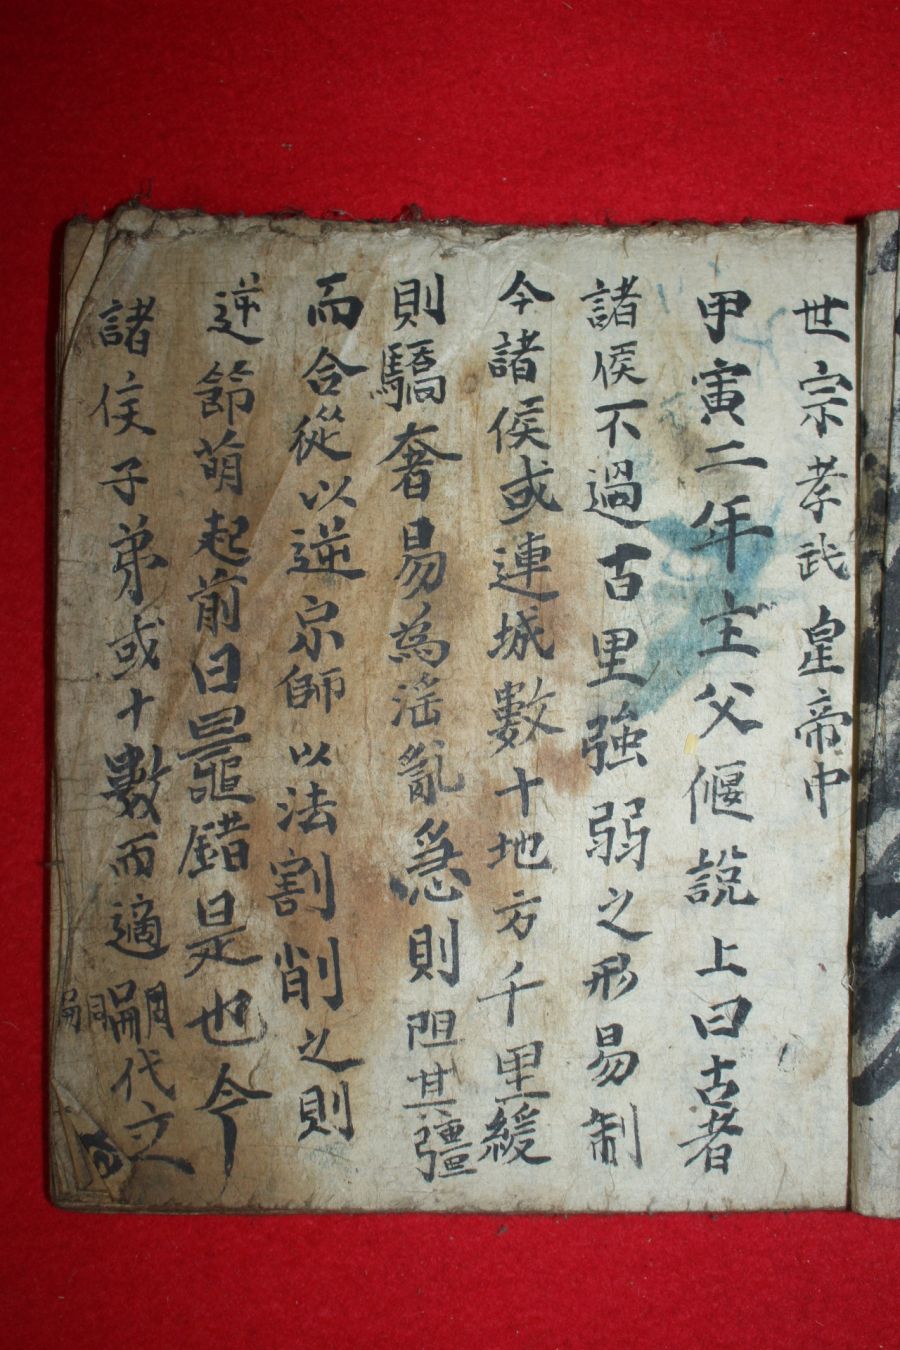 世宗孝武皇帝中
甲寅二年主父偃說上曰古者
諸侯不過古里強弱之形易制
今諸侯或連城數十地方千里緩
則驕奢易為滛亂急則阻其彊
而合從以逆京師以法割削之則
逆節萌起前日鼂錯是也今
諸侯子弟或十數而適嗣代立
嗣